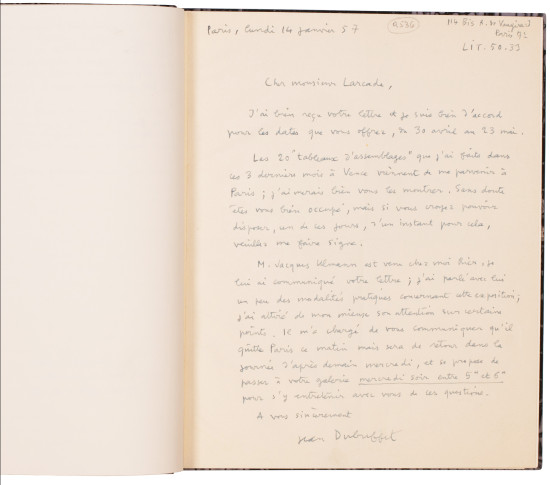 Paris, lundi 14 janvier 57
114 Bis R. de Vaugirard
Paris
LIT. 50.33
Cher monsieur Larcade,
J'ai bien reçu votre lettre et je suis bien d'accord
pour les dates que vous offrez, du 30 avril au 23 mai.
Les 20 "tableaux d'assemblages" que j'ai faits dans
ces 3 derniers mois à Vence viennent de me parvenir à
Paris ; j'aimerais bien vous les montrer. Sans doute
êtes vous bien occupé, mais si vous croyez pouvoir
disposer, un de ces jours, d'un instant pour cela,
veuillez me faire signe.
M. Jacques Ulmann est venu chez moi hier, je
lui ai communiqué votre lettre ; j'ai parlé avec lui
un peu des modalités pratiques concernant cette exposition ;
j'ai attiré de mon mieux son attention sur certains
points. Il m'a chargé de vous communiquer qu'il
quitte Paris ce matin mais sera de retour dans la
journée d'après demain mercredi, et se propose de
passer à votre galerie mercredi soir entre
pour s'y entretenir avec vous de ces questions.
A vous sincèrement
Jean Dubuffet